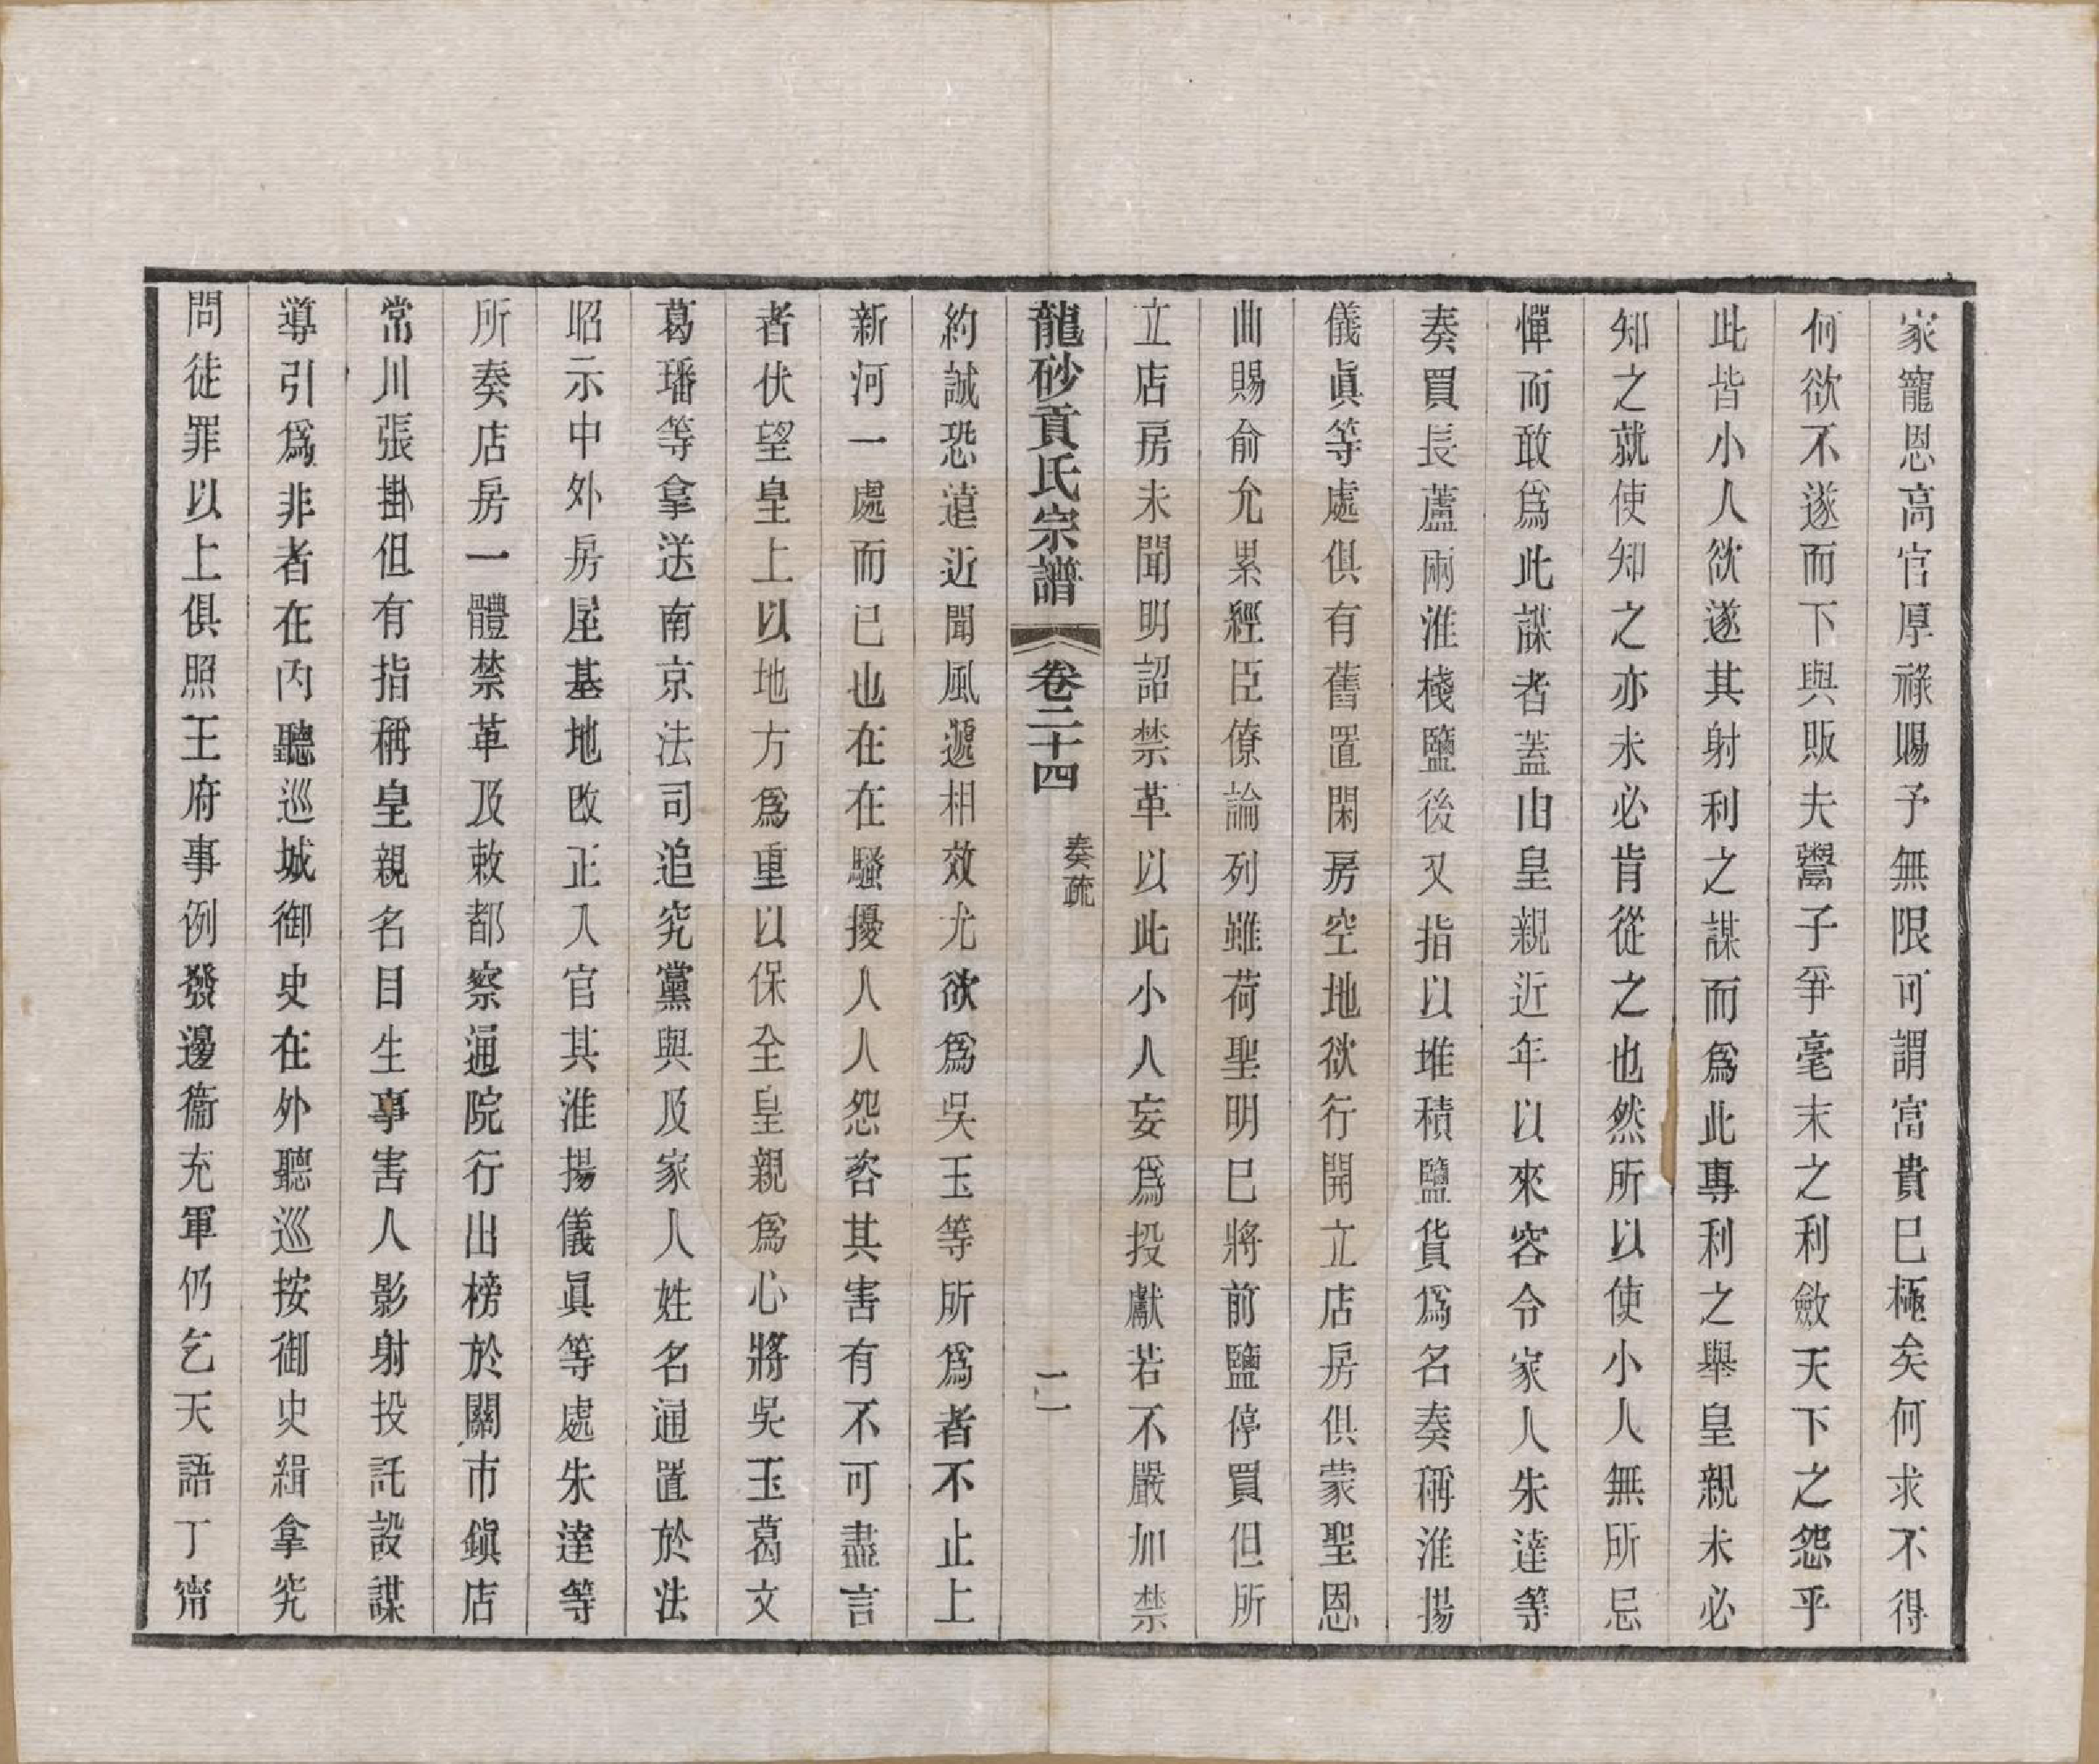 家寵恩高官厚祿賜予無限可謂富貴巳極矣何求不得
何欲不遂而下與販夫鬻子爭毫末之利斂天下之怨乎
此皆小人欲遂其射利之謀而爲此專利之舉皇親未必
知之就使知之亦未必肯從之也然所以使小人無所忌
憚而敢爲此謀者蓋由皇親近年以來容令家人朱達等
奏買長蘆兩淮棧鹽後又指以堆積鹽貨爲名奏稱淮揚
儀眞等處俱有舊置閑房空地欲行開立店房俱蒙聖恩
曲賜俞允累經臣僚論列雖荷聖明巳將前鹽停買但所
立店房未聞明詔禁革以此小人妄爲投獻若不嚴加禁
龍砂貢氏宗譜 卷二十四 奏疏 二
約誠恐遠近聞風遞相效尤欲爲吳玉等所爲者不止上
新河一處而已也在在騷擾人人怨咨其害有不可盡言
者伏望皇上以地方爲重以保全皇親爲心將吳玉葛文
葛璠等拿送南京法司追究黨與及家人姓名通置於法
昭示中外房屋基地改正入官其淮揚儀眞等處朱達等
所奏店房一體禁革及敕都察通院行出榜於關市鎭店
常川張掛但有指稱皇親名目生事害人影射投託設謀
導引爲非者在內聽巡城御史在外聽巡按御史緝拿究
問徒罪以上俱照王府事例發邊衞充軍仍乞天語丁甯